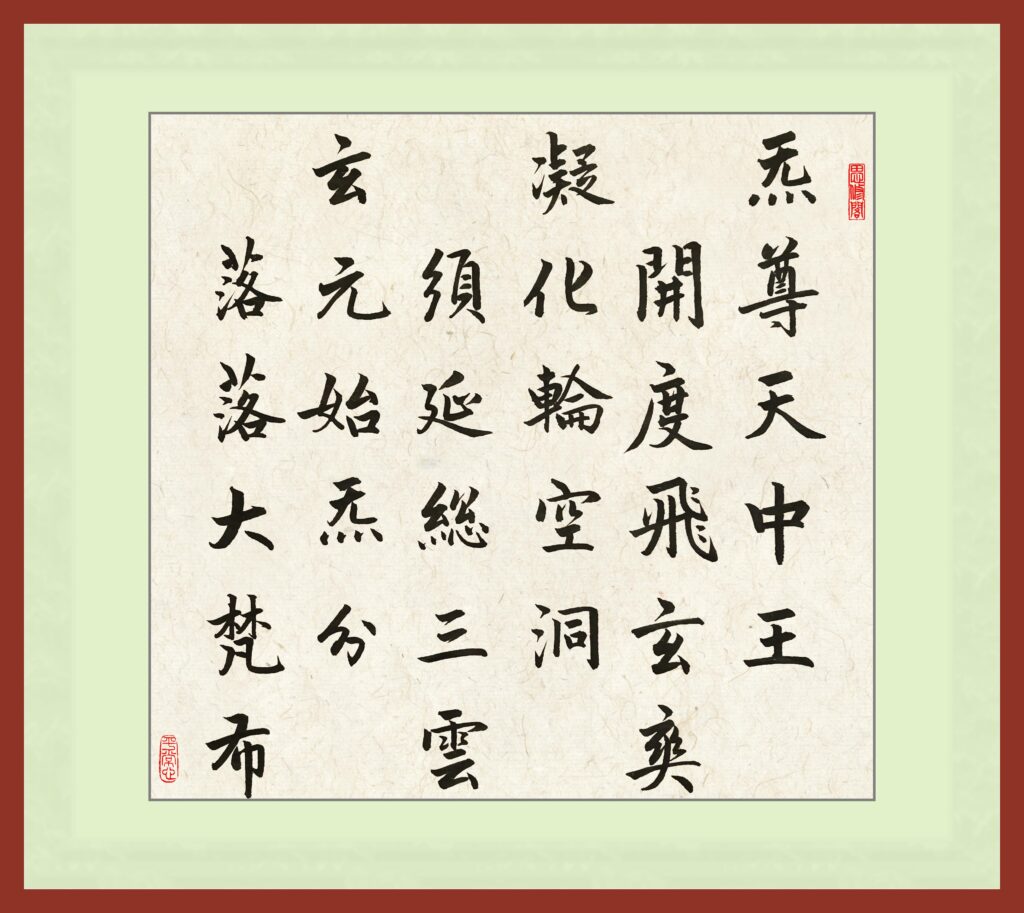 炁尊天中王
開度飛玄爽
凝化輪空洞
須延総三雲
玄元始炁分
落落大梵布
思補閣
平常心